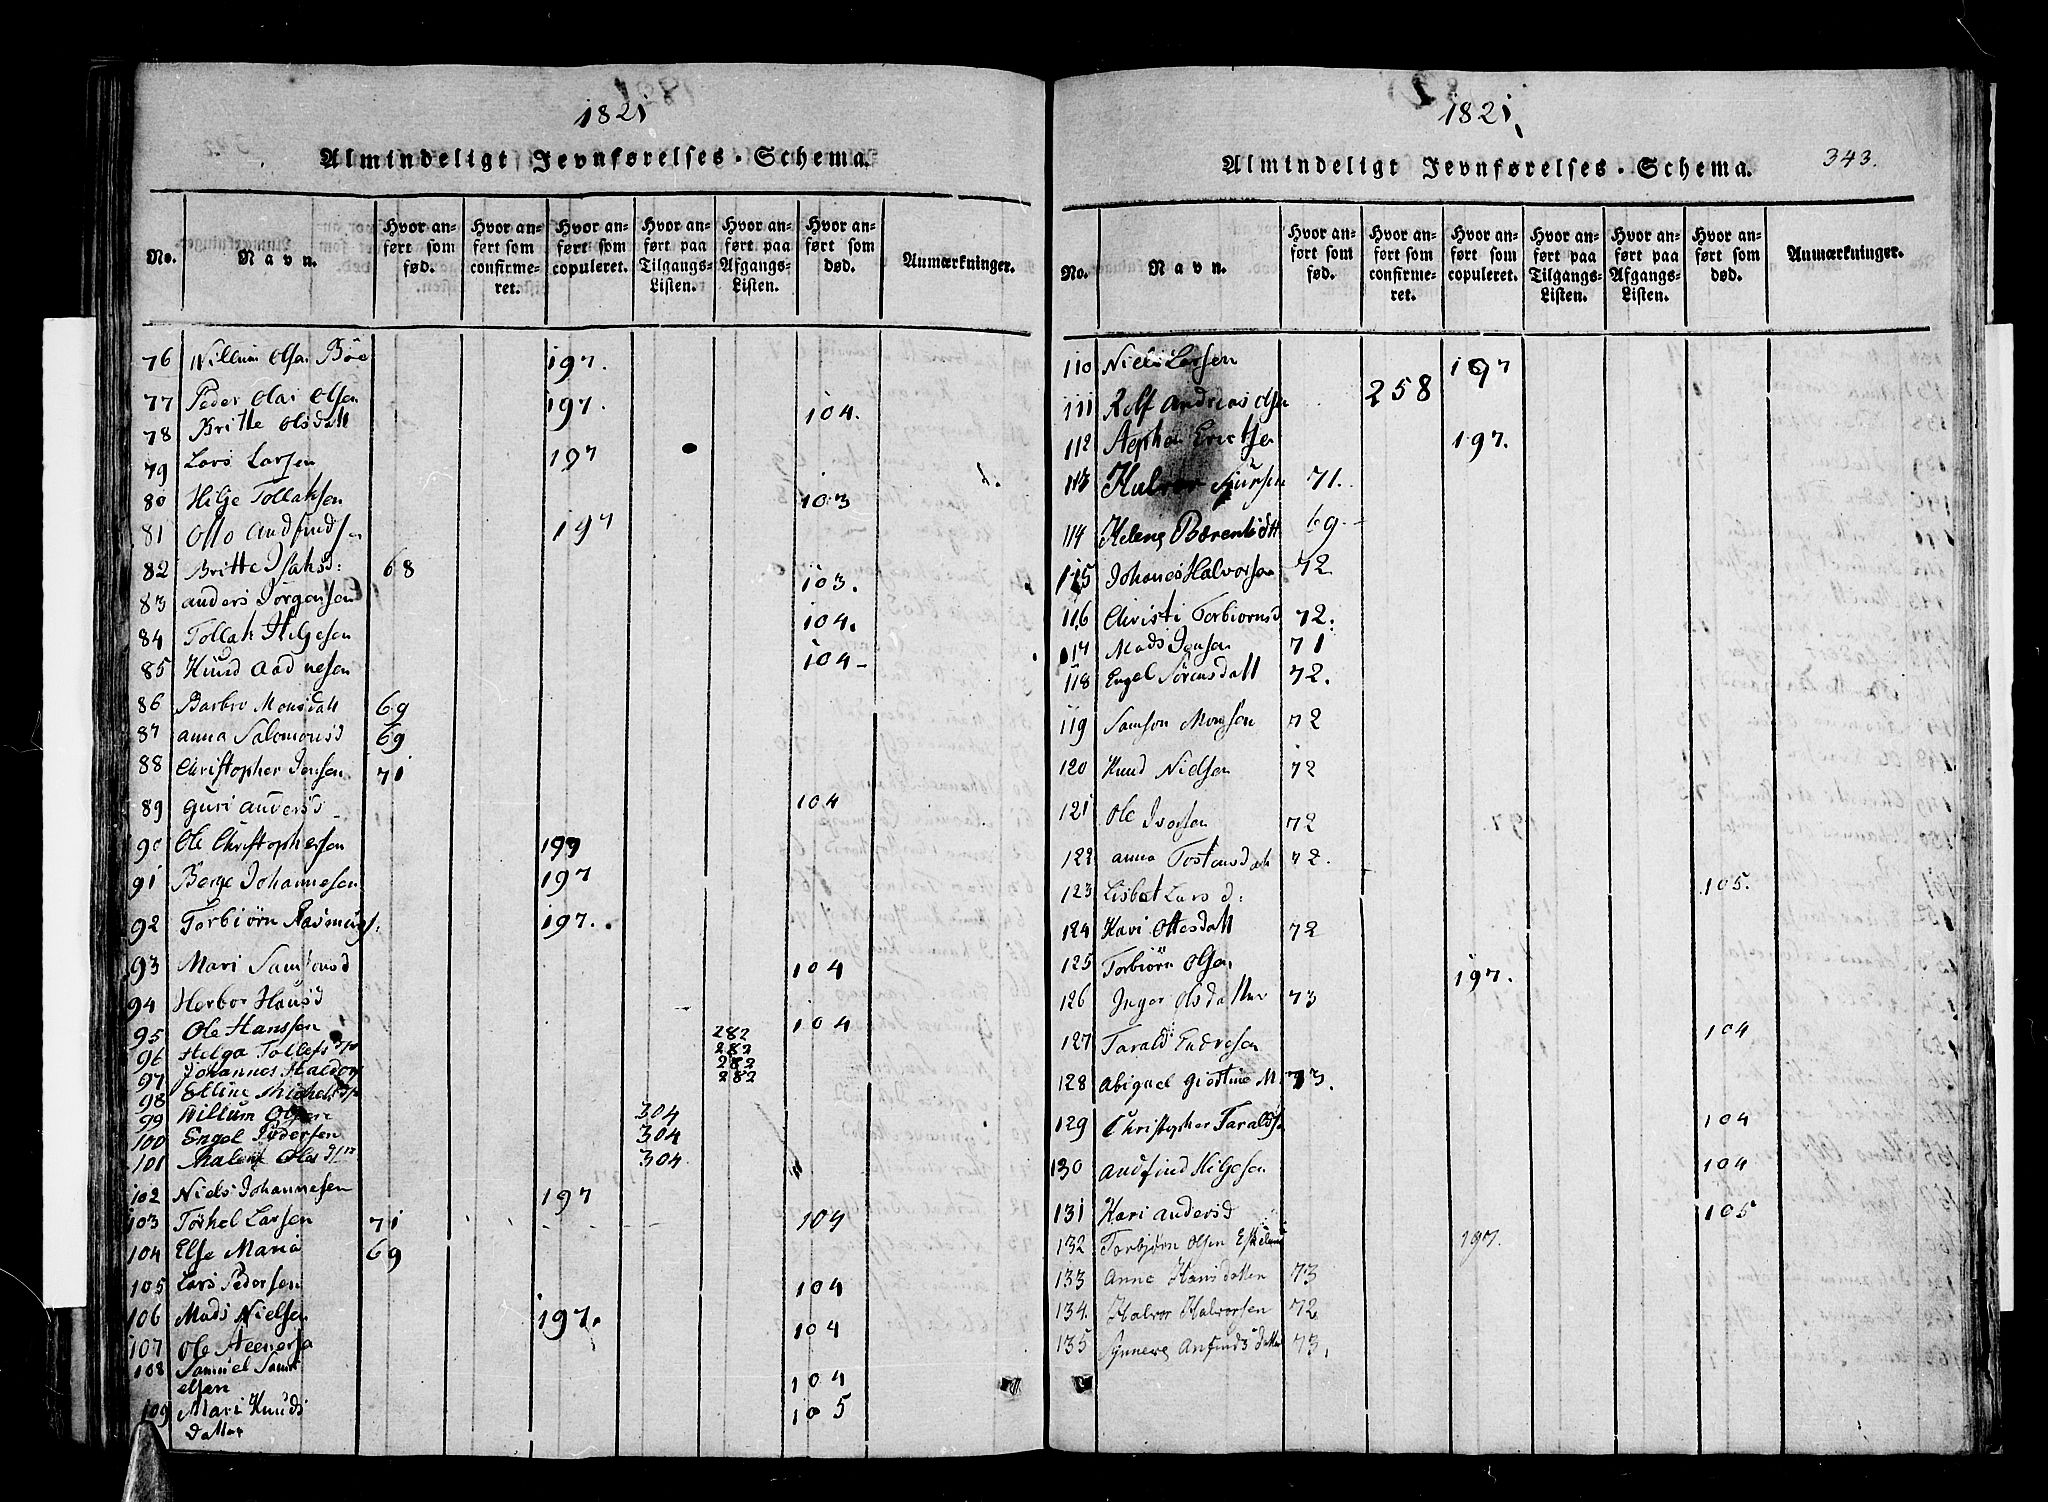 1821
Almindeligt Jevnførelses-Schema.
No. Navn. Hvor anført som fød. Hvor anført som confirmeret. Hvor anført som copuleret. Hvor anført paa Tilgangs-Listen. Hvor anført paa Afgangs-Listen. Hvor anført som død. Anmærkninger.
76 Willum Olsen Böe 197.
77 Peder Olai Olsen 197.
78 Britte Olsdatt 104.
79 Lars Larsen 197
80 Hilje Tollaksen 103
81 Otto Andfinds 197
82 Britte Isaksd: 68
83 anders Jörgensen 103.
84 Tollak Hilgesen 104.
85 Knud Aadnesen 104
86 Barbro Monsdatt 69
87 anna Salomonsd 69
88 Christopher Jensen 71
89 Guri andersd 104
90 Ole Christophersen 199
91 Berge Johannesen 197
92 Torbiörn Rasmuss: 197.
93 Mari Samsonsd 104
94 Herbor Hansd
95 Ole Hanssen 104 282
96 Helga Tollefsd/tr 282
97 Johannes Haldors 282
98 Elline Michelsd/tr 282
99 Willum Olsen 304
100 Engel Pedersen 304
101 Malene Olsd/tr 304
102 Niels Johannesen 197
103 Törkel Larsen 71 104
104 Else Maria 69
105 Lars Pedersen 104
106 Mads Nielsen 197.
107 Ole Steenersen 104
108 Samuel Samuelsen 104
109 Mari Knuds datter 105
1821
Almindeligt Jevnførelses-Schema. 343.
No. Navn. Hvor anført som fød. Hvor anført som confirmeret. Hvor anført som copuleret. Hvor anført paa Tilgangs-Listen. Hvor anført paa Afgangs-Listen. Hvor anført som død. Anmærkninger.
110 Niels Larsen 197
111 Rolf Andreas Olsen 258
112 Ericksen 197.
113 Halvor Siursen 71.
114 Helene Berentsdtt 69
115 Johanes Halvorsen 72
116 Christi Torbiornsd 72.
117 Mads Jensen 71
118 Engel Sörensdatt 72.
119 Samson Monsen 72
120 Knud Nielsen 72
121 Ole Ivarsen 72
122 anna Tostensdatt 72.
123 Lisbet Larsd: 105.
124 Kari Ottesdatt 72
125 Torbiörn Olsen 197.
126 Inger Olsdatter 73
127 Tarald Endresen 104
128 Abigael Giertine M. 73.
129 Christopher Taralds 104
130 Andfind Hilgesen 104
131 Kari Andersd 105
132 Torbjørn Olsen 197.
133 Anne Hansdatter 73
134. Halvor Halvorsen 72
135 Synneve Anfindsdatter 73.